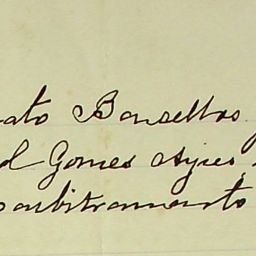 ato Barcellos
el Gomes Ayres,
o arbitramento